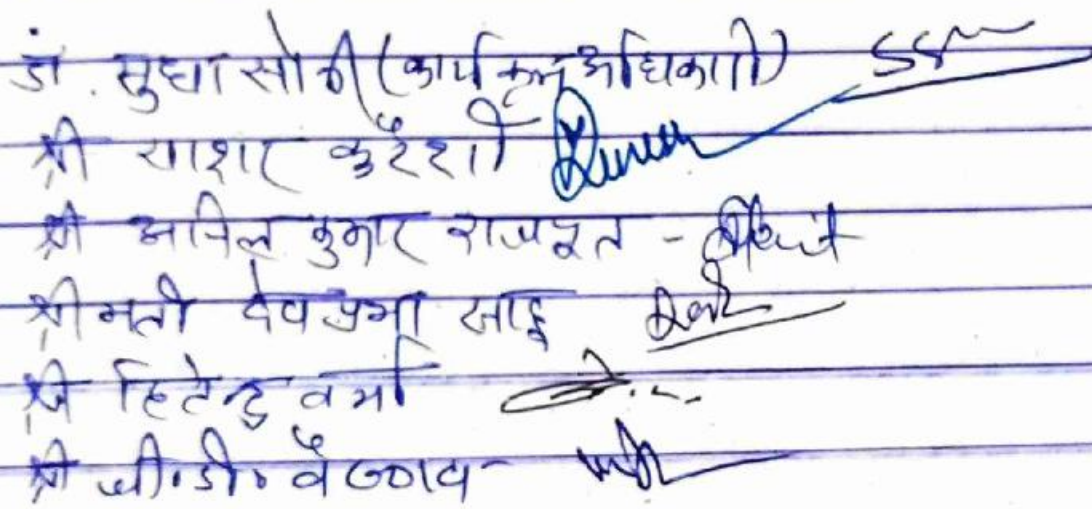 डॉ. सुधा सोनी (कार्यक्रम अधिकारी)
श्री याशर कुरैशी
श्री अनिल कुमार राजपूत -
श्रीमती देवप्रभा साहू
श्री हितेन्द्र वर्मा
श्री जी.डी. वैष्णव